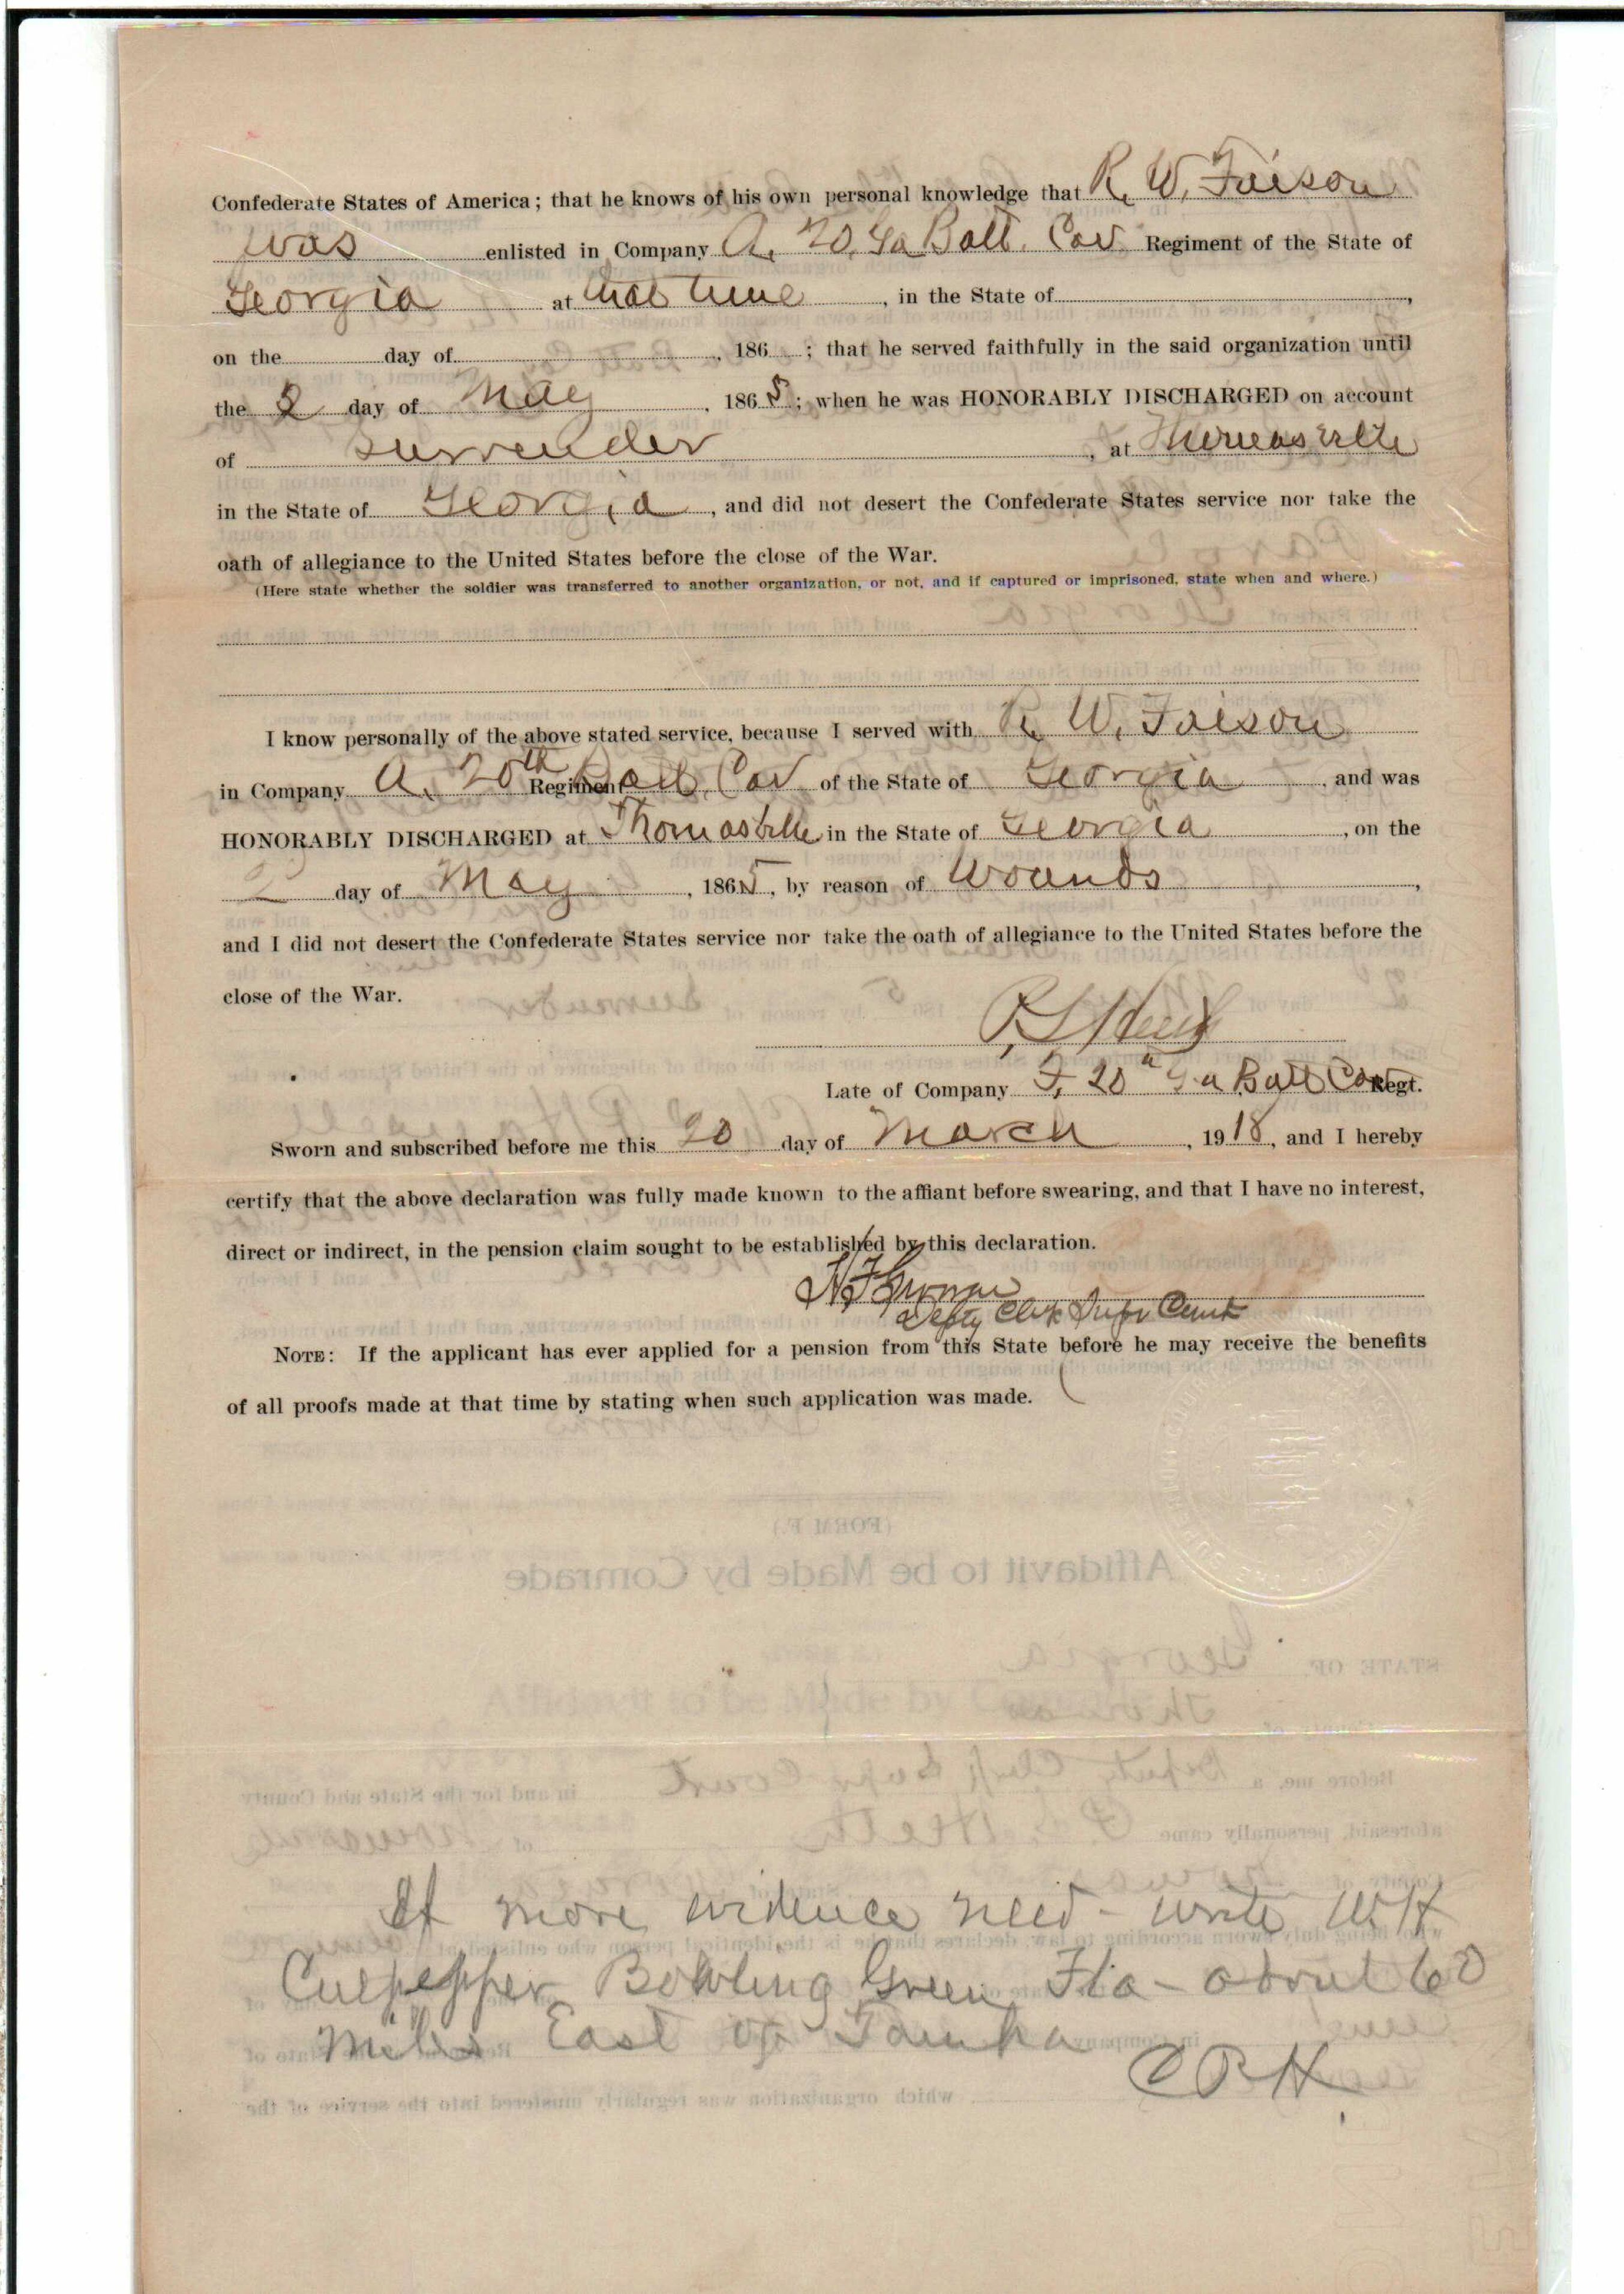 Confederate States of America; that he knows of his own personal knowledge that R. W. Faison
was enlisted in Company A. 20. Ga Batt. Cav Regiment of the State of
Georgia at that time, in the State of,
on the day of, 186 ; that he served faithfully in the said organization until
the 2 day of May, 1865; when he was HONORABLY DISCHARGED on account
of surrender, at Thomasville
in the State of Georgia, and did not desert the Confederate States service nor take the
oath of allegiance to the United States before the close of the War.
(Here state whether the soldier was transferred to another organization, or not, and if captured or imprisoned, state when and where.)
I know personally of the above stated service, because I served with R. W. Faison
in Company A. 20th Regiment Batt. Cav of the State of Georgia, and was
HONORABLY DISCHARGED at Thomasville in the State of Georgia, on the
2 day of May, 1865, by reason of Wounds,
and I did not desert the Confederate States service nor take the oath of allegiance to the United States before the
close of the War.
Late of Company F. 20th Ga Batt Cav Regt.
Sworn and subscribed before me this 20 day of March, 1918, and I hereby
certify that the above declaration was fully made known to the affiant before swearing, and that I have no interest,
direct or indirect, in the pension claim sought to be established by this declaration.
Depty Clerk Supr Court
NOTE: If the applicant has ever applied for a pension from this State before he may receive the benefits
of all proofs made at that time by stating when such application was made.
If more evidence need - write W H
Culpepper Bowling Green Fla - about 60
miles East of Tampa
C R H